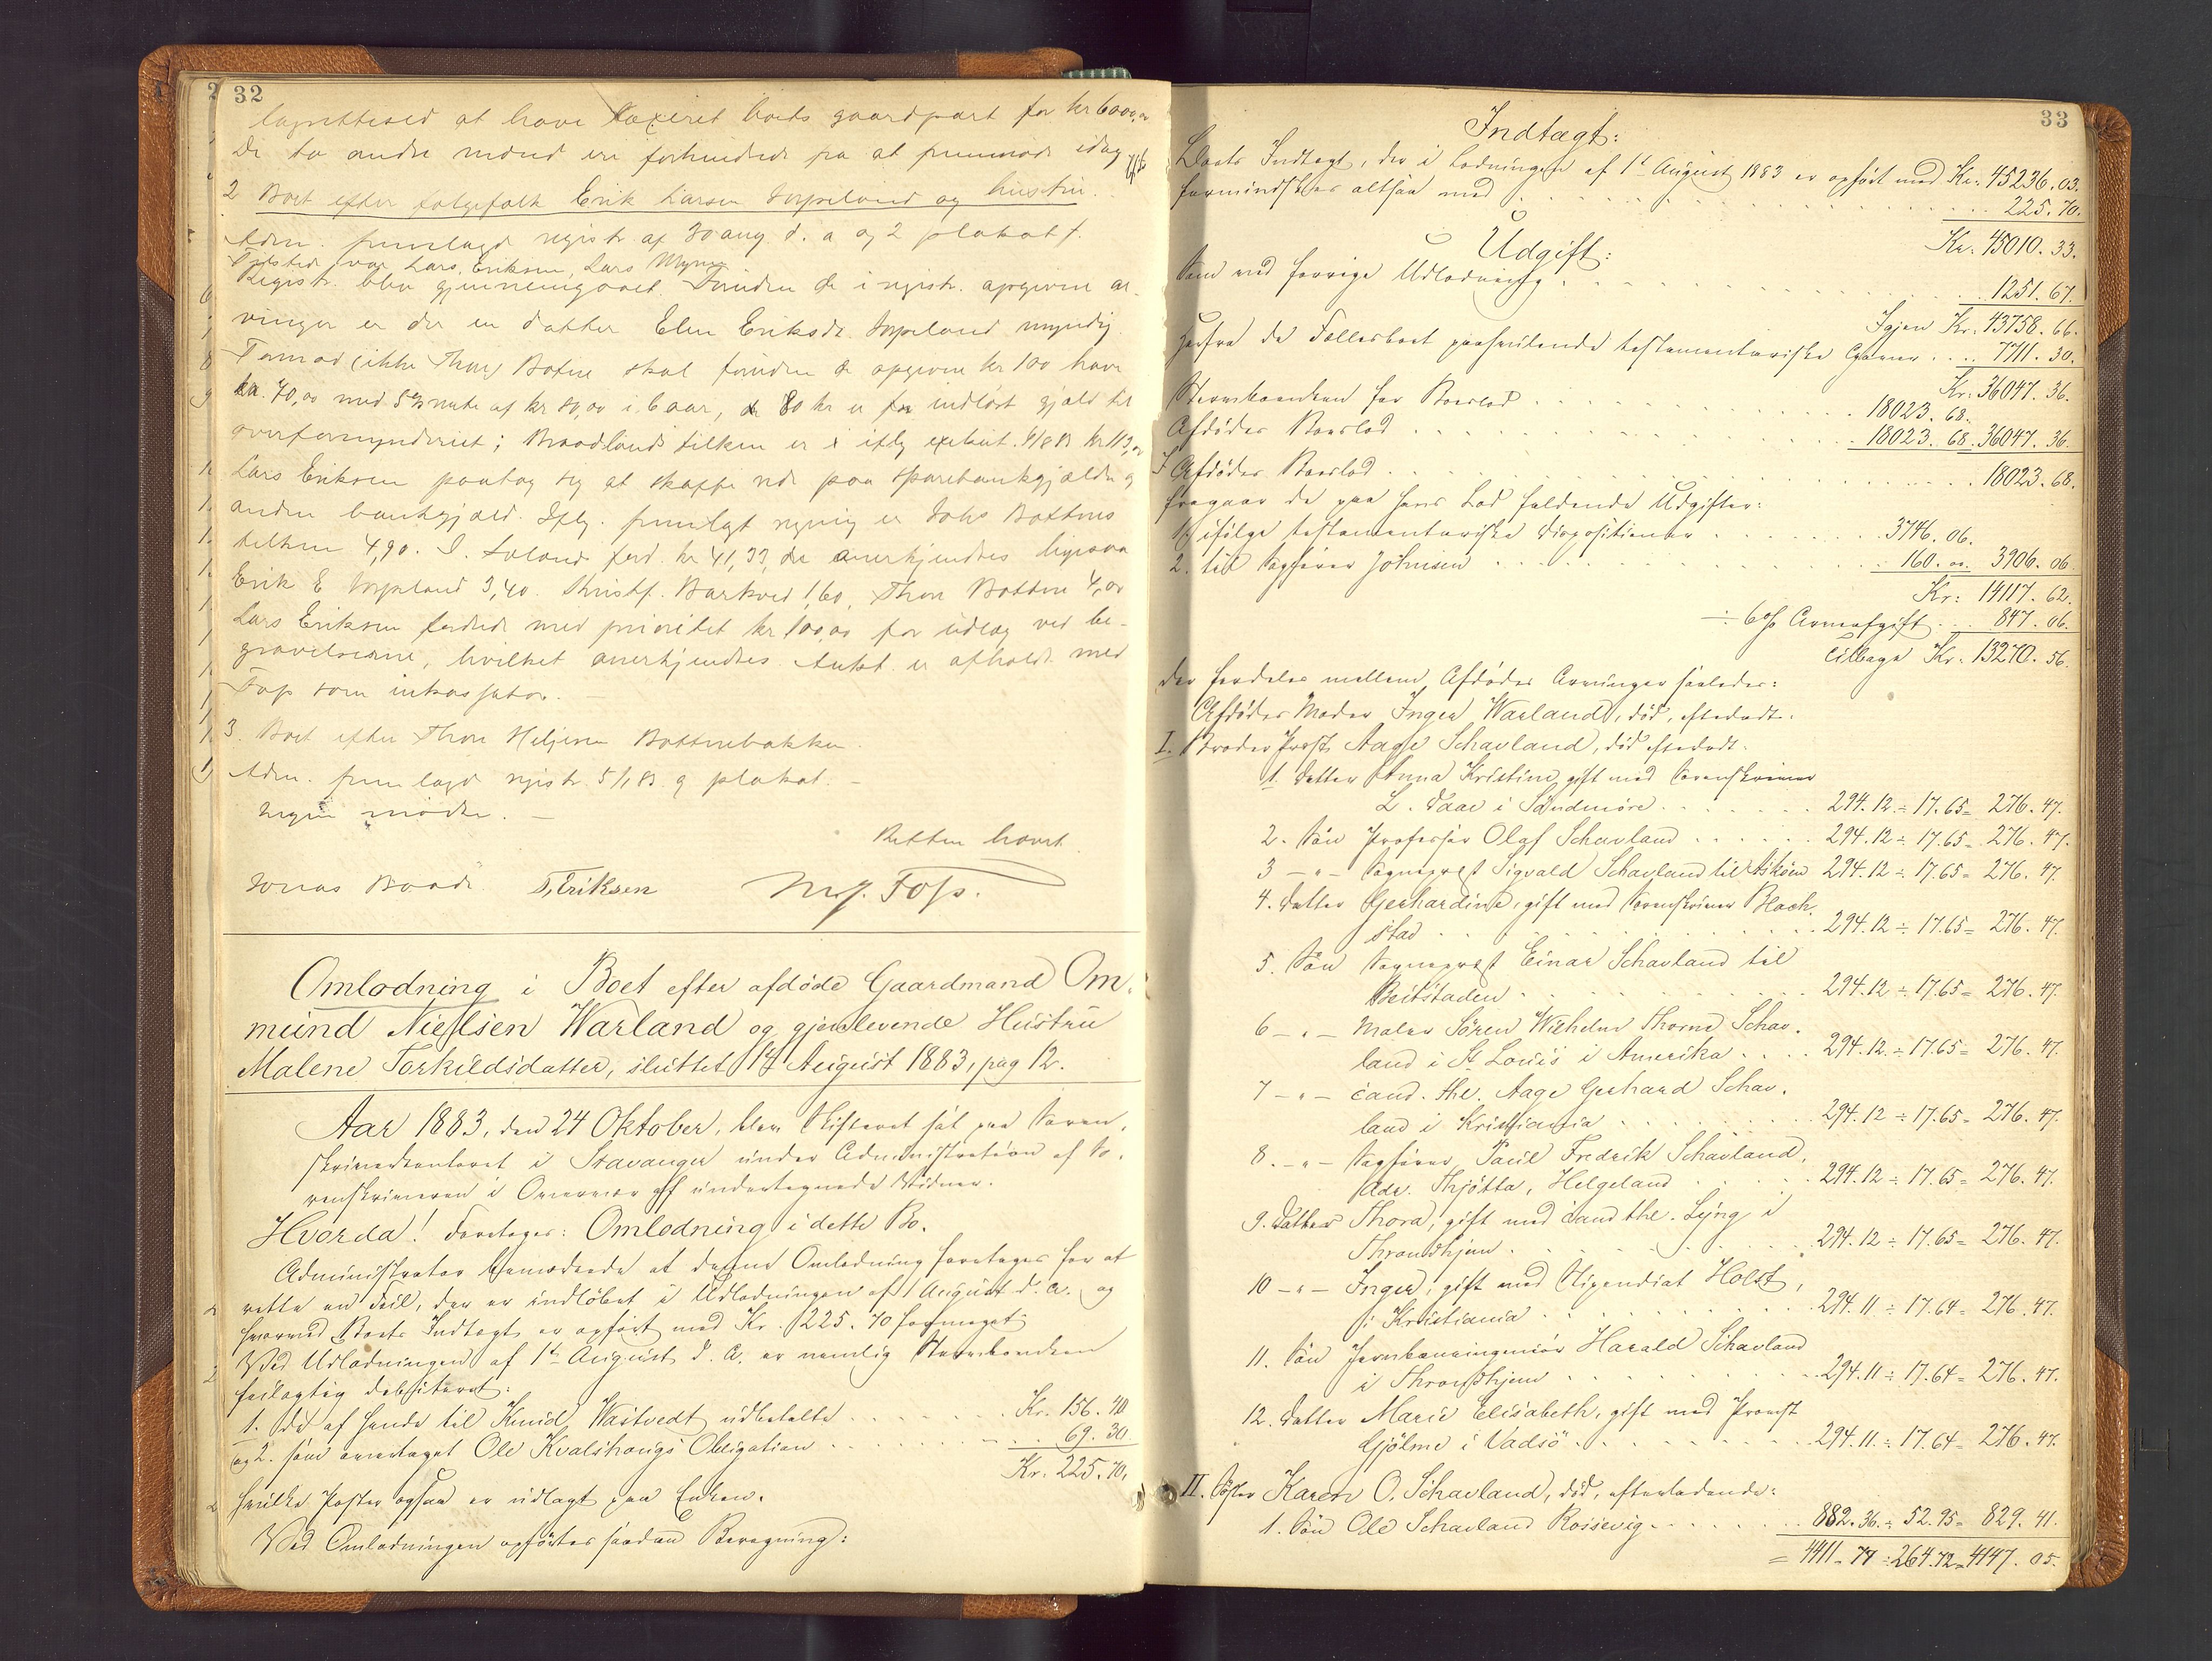 32
lagrettesed at have taxeret boets gaardpart for kr 6000,00
De to andre mænd ere forhindrede fra at fremmøde idag
2 Boet efter folgefolk Erik Larsen Torpeland og hustru.
Adm. fremlagde registr. af 30 aug. d. a og 2 plakat f.
Tilstede var Lars Eriksen, Lars
Registr. blev gjennemgaaet. Foruden de i registr. opgivne ar-
vinger er der en datter Elen Eriksdr. Torpeland myndig.
Tormod (ikke Thore) Botne skal foruden de opgivne kr 100 have
kr. 70,00 med 5% rente af kr 80,00 i 6 aar, de 80 kr er for indløst gjæld til
overformynderiet; Braadlands tilkom er ifølg exekut. kr 113,00
Lars Eriksen paatog sig at skaffe rede paa sparebankgjælden og
anden bankgjæld. Iflg. fremlagt regning er Johs Bottnes
tilkom 4,90. S. Soland ford. kr 41,33, der anerkjendtes ligesaa
Erik E Torpeland 3,40. Kristf. Barkved 1,60, Thore Bottne 4,00
Lars Eriksen fordrede med prioritet kr 100,00 for udlæg ved be-
gravelserne, hvilket anerkjendtes. Aukt. er afholdt med
Foss som inkassator. —
3. Boet efter Thore Heljesen Bottnebakken.
Adm. fremlagde registr. 5/1 83 og plakat. —
Ingen mødte. —
Retten hævet
Jonas Baade T. Eriksen M. J. Foss.
Omlodning i Boet efter afdøde Gaardmand Om-
mund Nielsen Warland og gjenlevende Hustru
Malene Torkildsdatter, sluttet 1st August 1883, pag 12.
Aar 1883, den 24 Oktober, blev Skifteret sat paa Soren-
skriverkontoret i Stavanger under Administration af So-
renskriveren i Overvær af undertegnede Vidner.
Hvorda! Foretoges: Omlodning i dette Bo.
Administrator bemærkede at denne Omlodning foretages for at
rette en Feil, der er indløbet i Udlodningen af 1 August d. A. og
hvorved Boets Indtægt er opført med Kr. 225.70 for meget
Ved Udlodningen af 1st August d. A. er nemlig Stervboenken
feilagtig debiteret:
1. det af hende til Knud Wastvedt udbetalte . . . . . Kr. 156. 40
og 2. som overtaget Ole Kvalshougs Obligation . . . . . 69. 30.
Kr. 225. 70.
hvilke Poster ogsaa er udlagt paa Enken.
Ved Omlodningen opførtes saadan Beregning:
33
Indtægt:
Boets Indtægt, der i Lodningen af 1st August 1883 er opført med Kr. 45236. 03.
formindskes altsaa med . . . . . 225. 70.
Kr. 45010. 33.
Udgift:
Som ved forrige Udlodning . . . . . 1251. 67.
Igjen Kr. 43758. 66.
Herfra de Fællesboet paahvilende testamentariske Gaver . . . . 7711. 30.
Kr. 36047. 36.
Stervboenken for Boeslod . . . . . 18023. 68.
Afdødes Boeslod . . . . . 18023. 68. 36047. 36.
I Afdødes Boeslod . . . . . 18023. 68.
fragaar de paa hans Lod faldende Udgifter:
1. ifølge testamentariske Dispositioner . . . . . 3746. 06.
2. til Sagfører Johnsen . . . . . 160. 00. 3906. 06.
Kr: 14117. 62.
÷ 6% Arveafgift . . . 847. 06.
Tilbage Kr. 13270. 56.
der fordeles mellem Afdødes Arvinger saaledes:
Afdødes Moder Inger Warland, død, efterladt.
I. Broder Provst Aage Schavland, død efterladt.
1. Datter Anna Kristine, gift med Sorenskriver
L. Daae i Søndmøre . . . . . 294. 12 ÷ 17. 65 = 276. 47.
2. Søn Professor Olaf Schavland . . . . . 294. 12 ÷ 17. 65 = 276. 47.
3 — " — Sogneprest Sigvald Schavland til 294. 12 ÷ 17. 65 = 276. 47.
4. Datter Gerhardine, gift med Sorenskriver Blach-
stad . . . . . 294. 12 ÷ 17. 65 = 276. 47.
5. Søn Sogneprest Einar Schavland til
Beitstaden . . . . . 294. 12 ÷ 17. 65 = 276. 47.
6 — " — Maler Sören Wilhelm Thorne Schav-
land i St Louis i Amerika . . . . 294. 12. ÷ 17. 65 = 276. 47.
7 — " — cand. the. Aage Gerhard Schav-
land i Kristiania . . . . . 294. 12 ÷ 17. 65 = 276. 47.
8. — " — Sagfører Paul Fredrik Schavland,
Adr. Thjötta, Helgeland . . . . . 294. 12 ÷ 17. 65 = 276. 47.
9. Datter Thora, gift med cand the. Lyng i
Throndhjem . . . . . 294. 12 ÷ 17. 65 = 276. 47.
10 — " — Inger, gift med Stipendiat Holst,
i Kristiania . . . . . 294. 11 ÷ 17. 64 = 276. 47.
11. Søn Jernbaneingeniør Harald Schavland
i Throndhjem . . . . . 294. 11 ÷ 17. 64 = 276. 47.
12. Datter Marie Elisabeth, gift med Provst
Gjölme i Vadsö . . . . . 294. 11. ÷ 17. 64 = 276. 47.
II. Søster Karen O. Schavland, død, efterladende:
1. Søn Ole Schavland Rossevig . . . . . 882. 36. ÷ 52. 95 = 829. 41.
= 4411. 77 ÷ 264. 72 = 4147. 05.